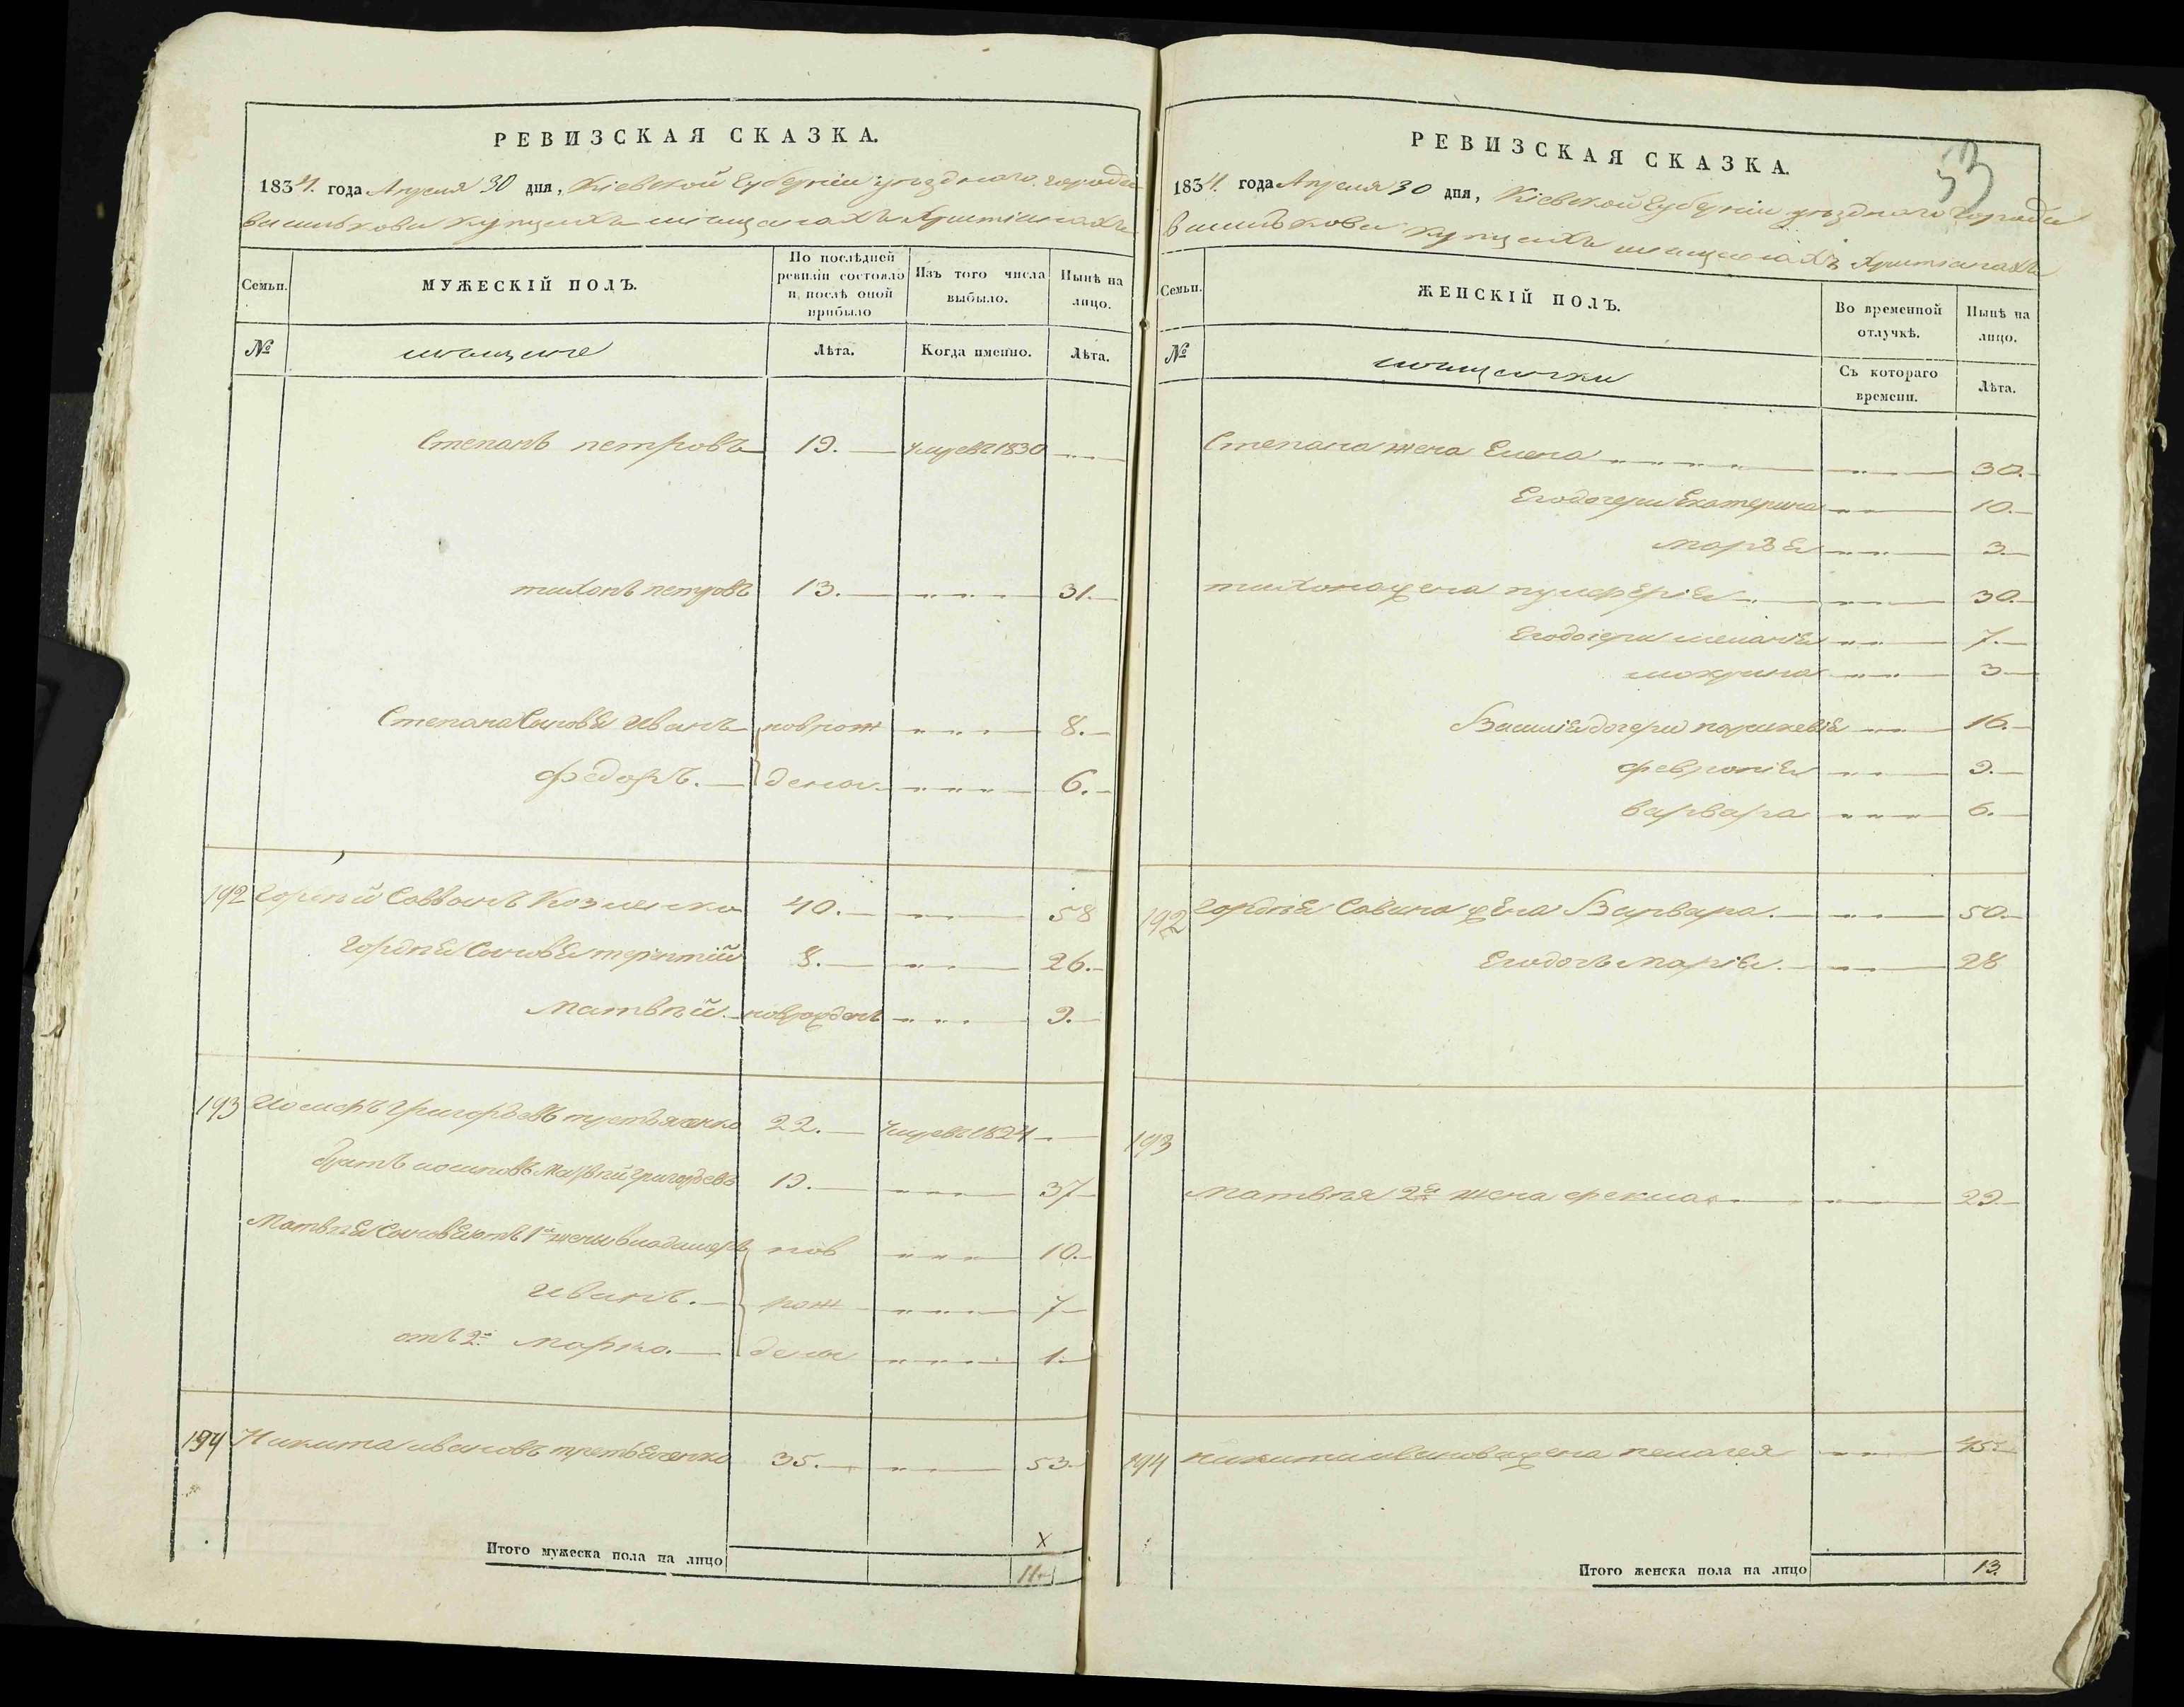 РЕВИЗСКАЯ СКАЗКА.
1834. года Апреля 30 дня, Кіевской Губерніи уезднаго города
Василькова купцахъ мещанахъ Християнахъ
Семьи. МУЖЕСКІЙ ПОЛЪ. По послѣдней ревизіи состояло и послѣ оной прибыло Изъ того числа выбыло. Нынѣ на лицо.
№ мещане Лѣта. Когда именно. Лѣта.
Степанъ петровъ 19. Умеръ 1830
тихонъ петровъ 13. 31.
Степана Сыновья Иванъ новрож 8.
федоръ. дены 6.
192 Гордей Саввинъ Козленко 40. 58
Гордея Сыновья терентий 8. 26.
Матвей. новрожденъ 9.
193 Григорьевъ 22. Умеръ 1824
братъ Матвей Григорьевъ 19. 37
Матвея Сыновья отъ 1й жены владимеръ нов 10.
Иванъ. рож 7
отъ 2й Марко. дены 1.
194 Никита ивановъ 35. 53.
Итого мужеска пола на лицо 11.
53
РЕВИЗСКАЯ СКАЗКА.
1834. года Апреля 30 дня, Кіевской Губерніи уезднаго города
Василькова купцахъ мещанахъ Християнахъ
Семьи. ЖЕНСКІЙ ПОЛЪ. Во временной отлучкѣ. Нынѣ на лицо.
№ мещанки Съ котораго времени. Лѣта.
Степана жена Елена 30.
Его дочери Екатерина 10.
марья 3.
тихона жена пулхерія 30.
Его дочери меланія 7.
мокрина 3
дочери 16.
февронія 9.
варвара 6.
192 Гордея Савина жена Варвара. 50.
Его дочь марія. 28
193
Матвея 2я жена фекла 29.
194 Никиты иванова жена пелагея 45.
Итого женска пола на лицо 13.